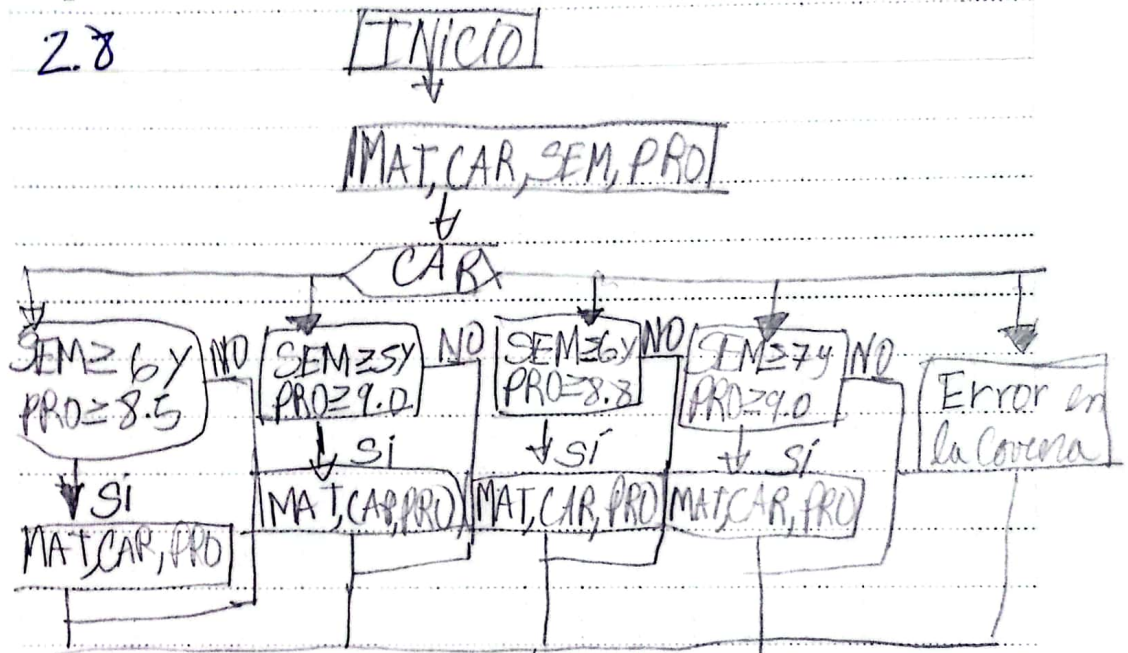 2.8
INICIO
MAT, CAR, SEM, PRO
CAR
SEM ≥ 6 Y
PRO ≥ 8.5
NO
SEM ≥ 5 Y
PRO ≥ 9.0
NO
SEM ≥ 6 Y
PRO ≥ 8.8
NO
SEM ≥ 7 y
PRO ≥ 9.0
NO
Error en
la
SÍ
MAT, CAR, PRO
SÍ
MAT, CAR, PRO
SÍ
MAT, CAR, PRO
SÍ
MAT, CAR, PRO